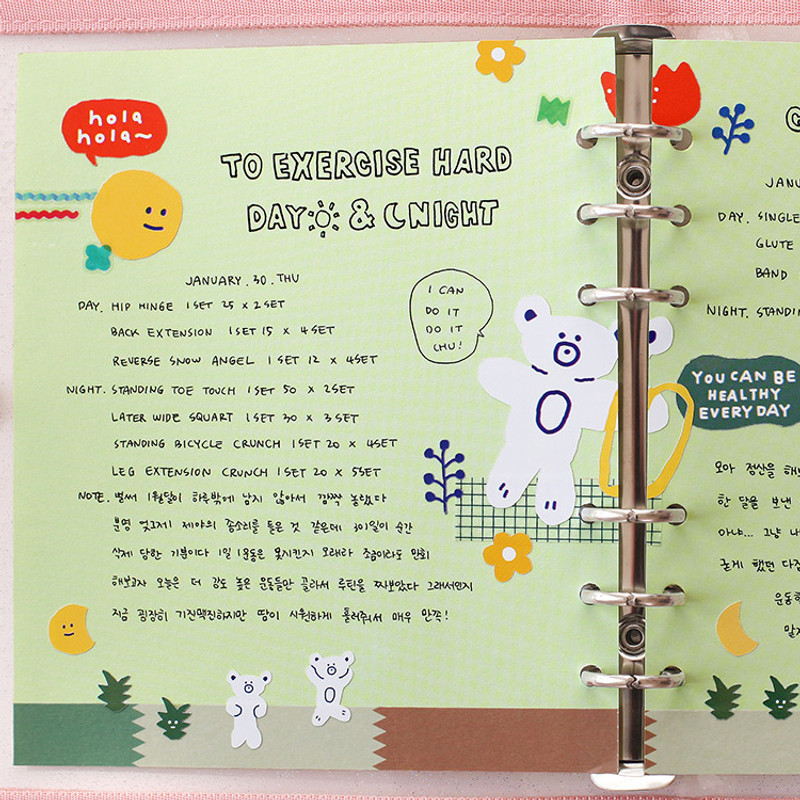 hola
hola~
TO EXERCISE HARD
DAY & NIGHT
JANUARY. 30. THU
DAY. HIP HINGE 1SET 25 x 2SET
BACK EXTENSION 1SET 15 x 4SET
REVERSE SNOW ANGEL 1SET 12 x 4SET
NIGHT. STANDING TOE TOUCH 1SET 50 x 2SET
LATER WIDE SQUART 1SET 30 x 3SET
STANDING BICYCLE CRUNCH 1SET 20 x 4SET
LEG EXTENSION CRUNCH 1SET 20 x 5SET
NOTE. 벌써 1월달이 하루밖에 남지 않아서 깜짝 놀랐다
분명 엊그제 제야의 종소리를 들은 것 같은데 30일이 순간
삭제 당한 기분이다 1일 1운동은 못지킨지 오래라 조금이라도 만회
해보고자 오늘은 더 강도 높은 운동들만 골라서 루틴을 짜보았다 그래서인지
지금 굉장히 기진맥진하지만 땀이 시원하게 흘러줘서 매우 만족!
I CAN
DO IT
DO IT
CHU!
JANU
DAY. SINGLE
GLUTE
BAND
NIGHT. STANDIN
YOU CAN BE
HEALTHY
EVERY DAY
모아 정산을 해보
한 달을 보낸
아냐... 그냥 나
굳게 했던 다짐
운동하
말자